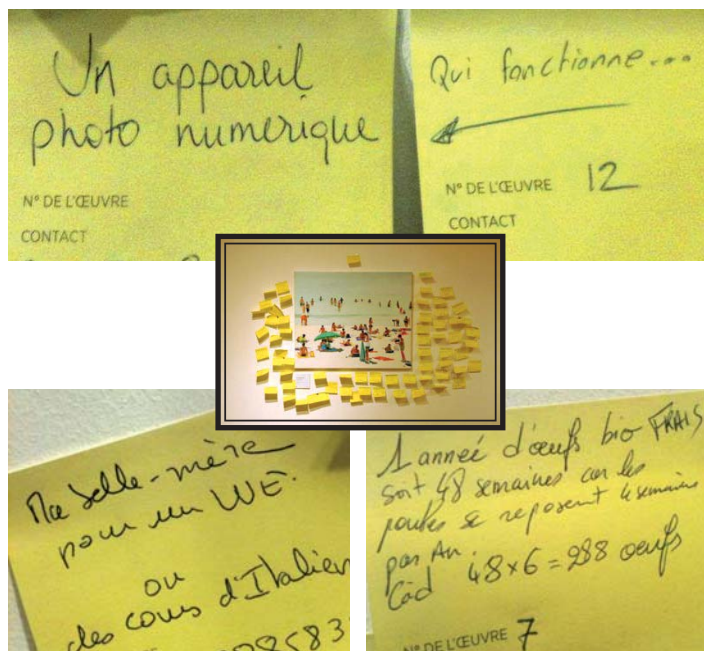 Un appareil
photo numerique
N° DE L'ŒUVRE
CONTACT
Qui fonctionne...
N° DE L'ŒUVRE 12
CONTACT
Ma belle-mère
pour un WE.
ou
des cours d'Italien
8583
1 anneé d'œufs bio FRAIS
soit 48 semaines car les
poules se reposent 4 semaines
par An.
Càd 48x6 = 288 oeufs
N° DE L'ŒUVRE 7